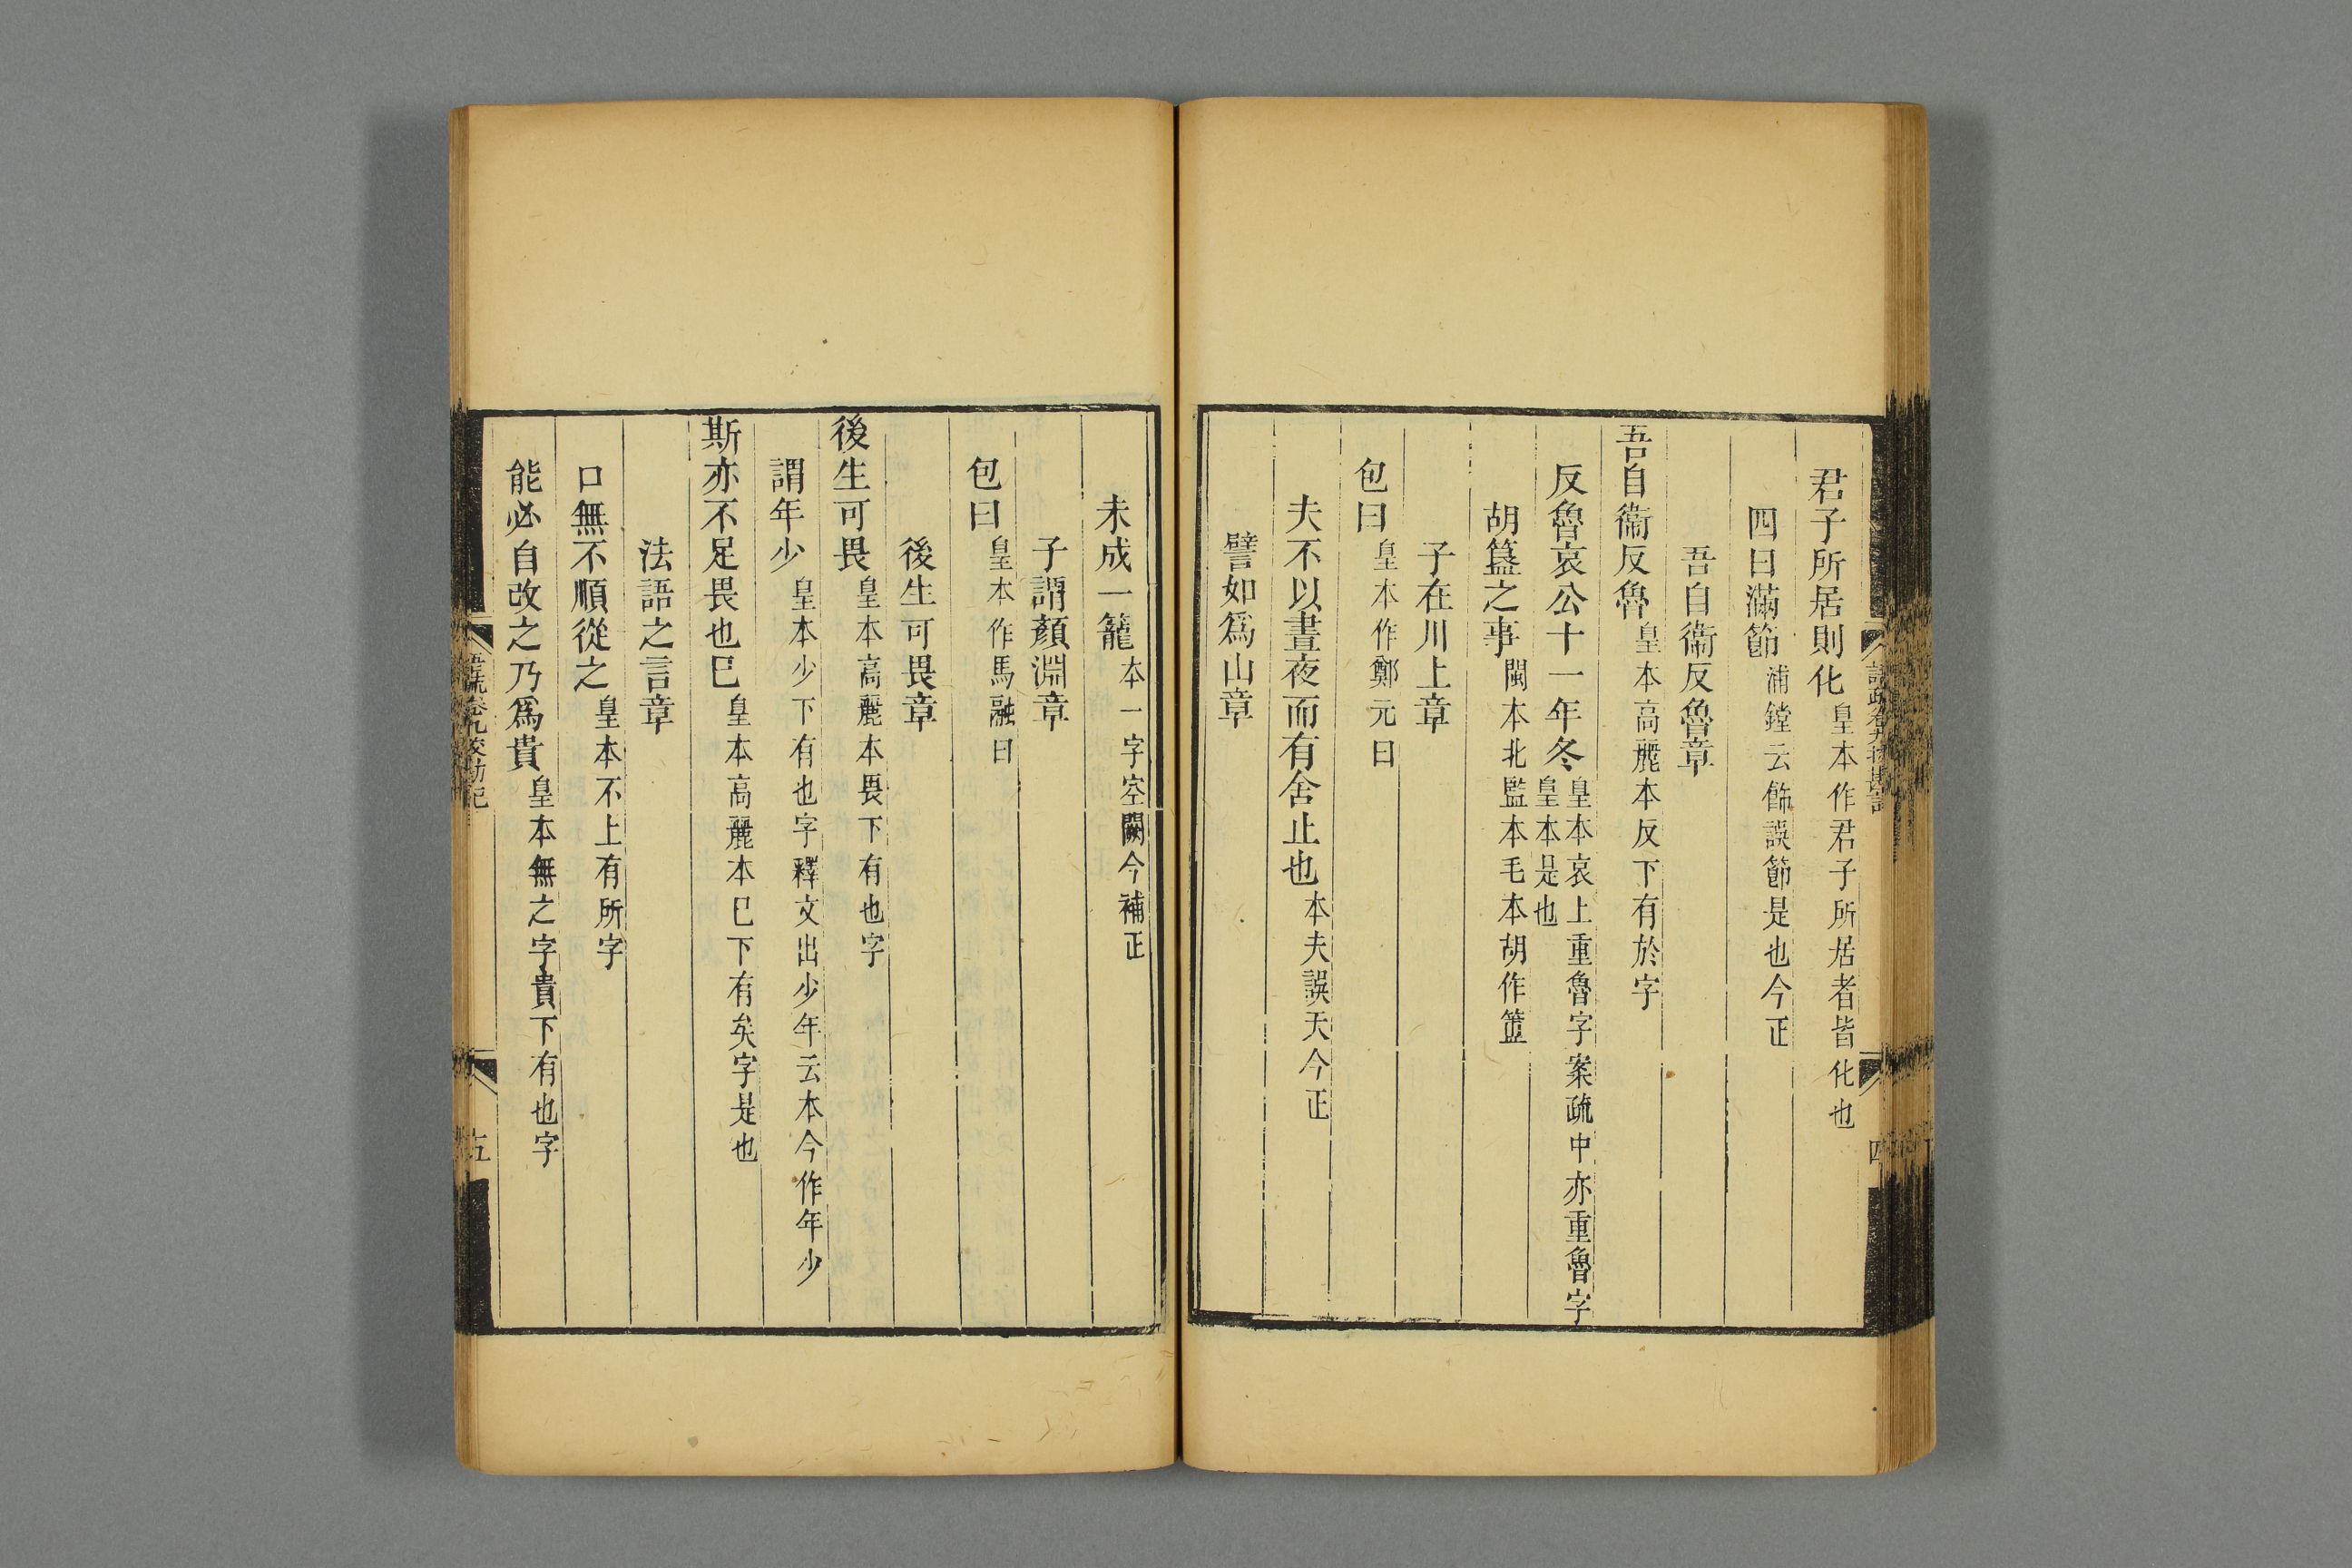 君子所居則化皇本作君子所居者皆化也
四曰滿節浦鏜云餙誤節是也今正
吾自衞反魯章
吾自衞反魯皇本高麗本反下有於字
反魯哀公十一年冬皇本哀上重魯字案疏中亦重魯字皇本是也
胡簋之事閩本北監本毛本胡作簠
子在川上章
包曰皇本作鄭元曰
夫不以晝夜而有舍止也本夫誤天今正
譬如爲山章
未成一籠本一字空闕今補正
子謂顏淵章
包曰皇本作馬融曰
後生可畏章
後生可畏皇本高麗本畏下有也字
謂年少皇本少下有也字釋文出少年云本今作年少
斯亦不足畏也巳皇本高麗本巳下有矣字是也
法語之言章
口無不順從之皇本不上有所字
能必自改之乃爲貴皇本無之字貴下有也字
五